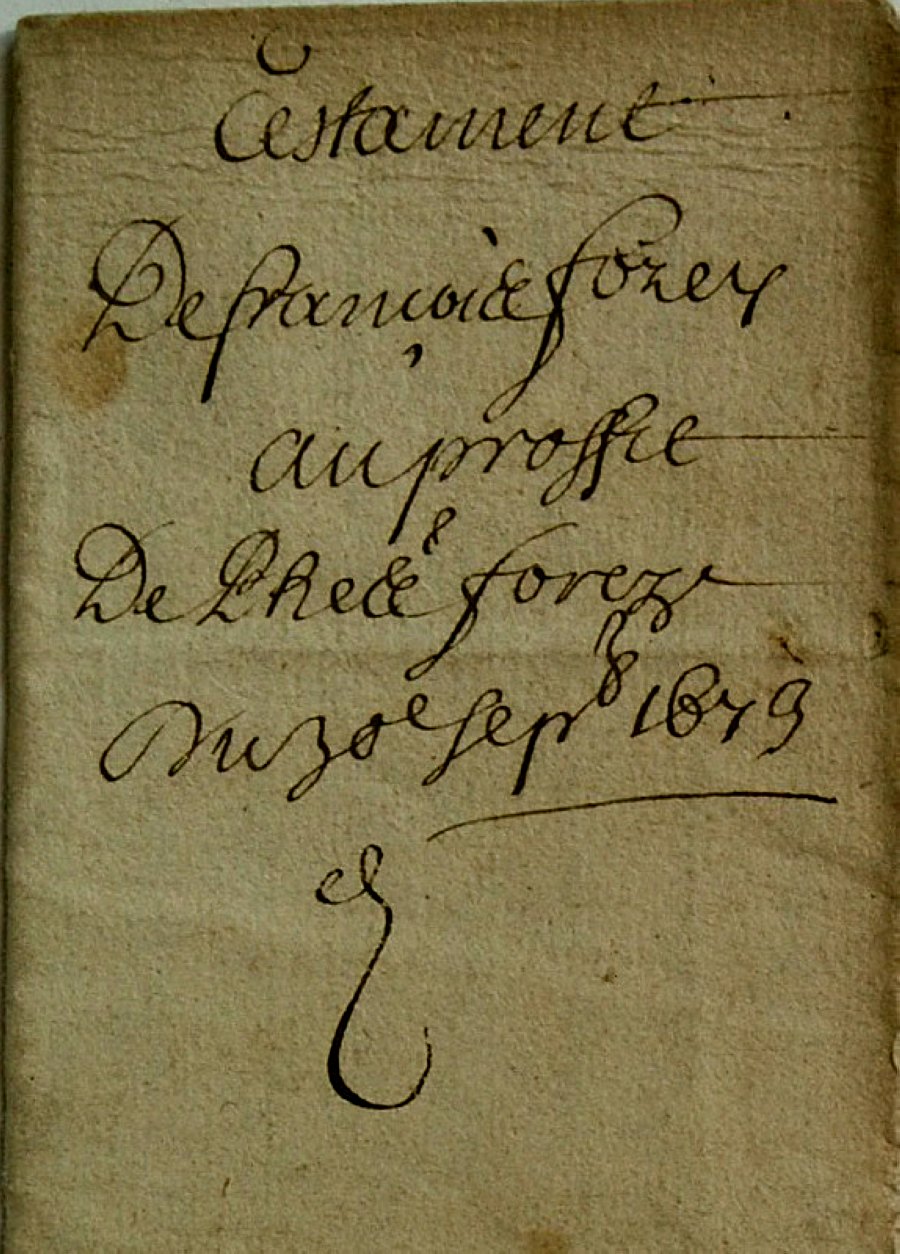 Testament
De françoise forey
au proffit
De Phe e foreye
Du 30e sepbre 1679